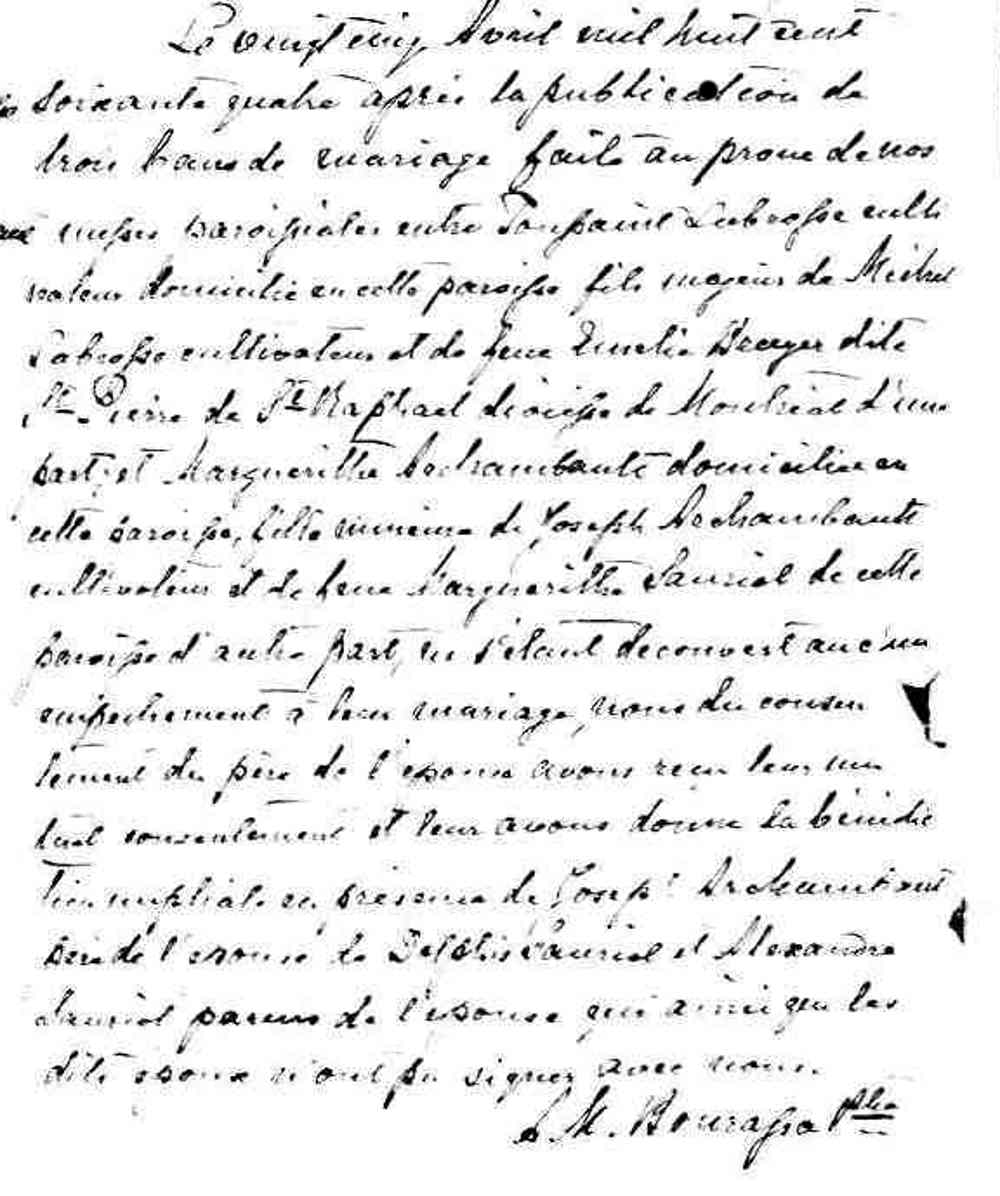 Le vingt cinq Avril mil huit cent
soixante quatre après la publication de
trois bans de mariage faite au prone de nos
messes paroissiales entre Toussaint Labrosse culti
vateur domicilié en cette paroisse fils majeur de Michel
Labrosse cultivateur et de feue Emelie Breyer dite
St. Pierre de St Raphael diocèse de Montréal d'une
part, et Margueritte Archambault domiciliée en
cette paroisse, fille mineure de Joseph Archambault
cultivateur et de feue Margueritte Sauriol de cette
paroisse d'autre part, ne s'étant decouvert aucun
empechement à leur mariage, nous du consen
tement du père de l'epouse avons reçu leur mu
tuel consentement et leur avons donné la bénédic
tion nuptiale en présence de Joseph Archambault
père de l'epouse de Delphis Sauriol et Alexandre
Sauriol parens de l'epouse qui ainsi que les
dits epoux n'ont pu signer avec nous.
M. Bourassa Ptre